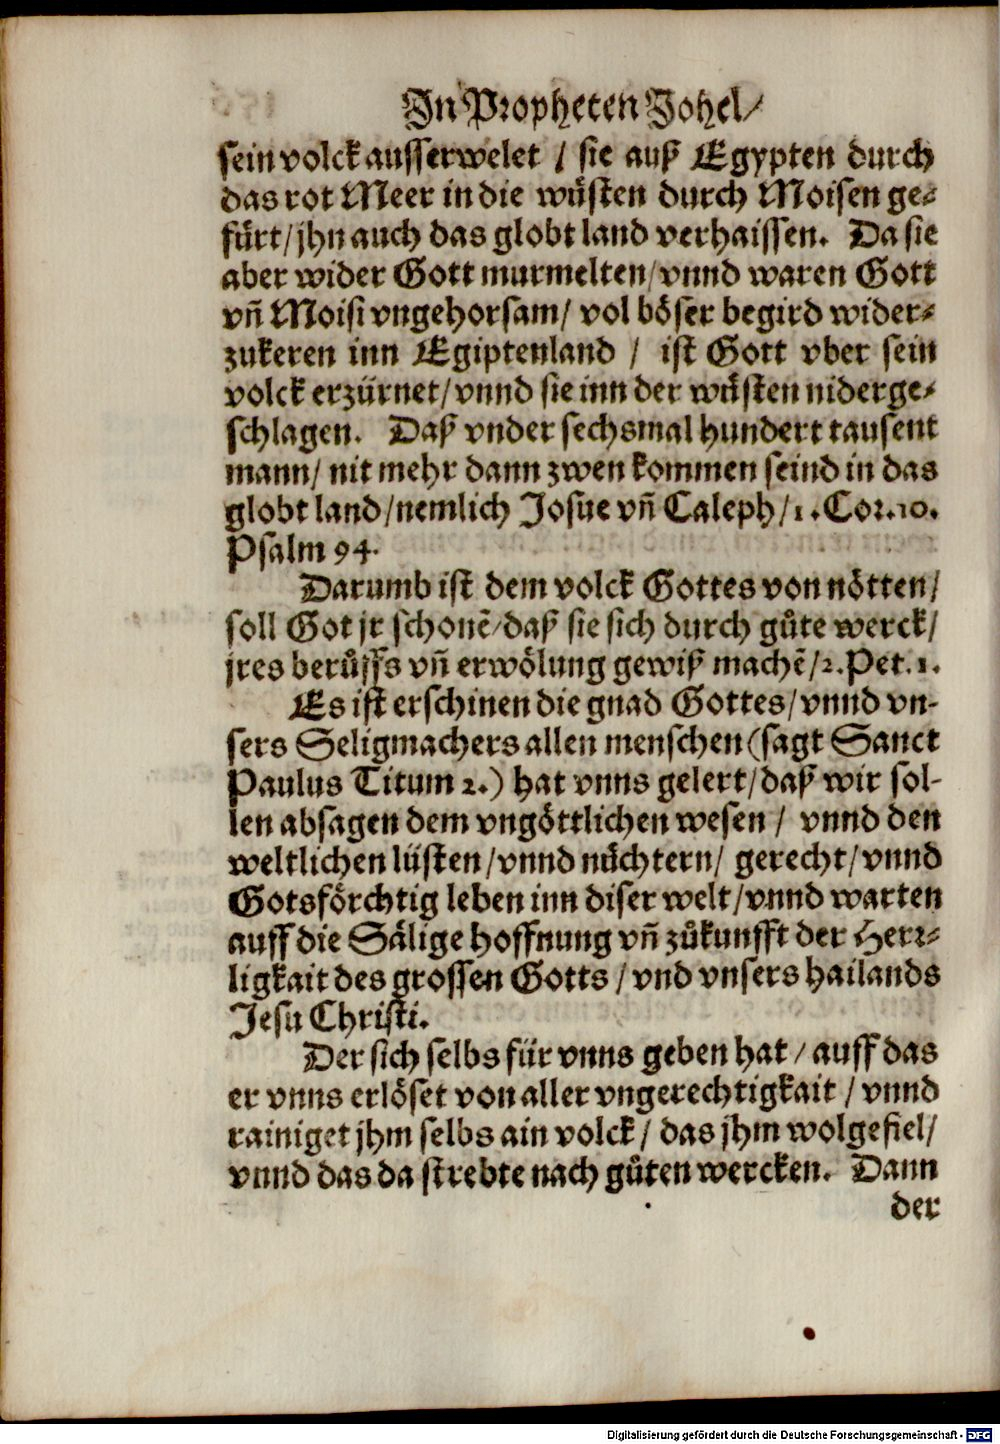 In Propheten Johel/
sein volck ausserwelet / sie auß Egypten durch
das rot Meer in die wůsten durch Moisen ge-
fürt/ jhn auch das globt land verhaissen. Da sie
aber wider Gott murmelten/ vnnd waren Gott
vñ Moisi vngehorsam/ vol böser begird wider-
zukeren inn Egiptenland / ist Gott vber sein
volck erzürnet/ vnnd sie inn der wůsten niderge-
schlagen. Daß vnder sechsmal hundert tausent
mann/ nit mehr dann zwen kommen seind in das
globt land/ nemlich Josue vñ Caleph/ 1. Cor. 10.
Psalm 94.
Darumb ist dem volck Gottes von nötten/
soll Got jr schonẽ/ daß sie sich durch gůte werck/
jres berůffs vñ erwölung gewiß machẽ/ 2. Pet. 1.
Es ist erschinen die gnad Gottes/ vnnd vn-
sers Seligmachers allen menschen (sagt Sanct
Paulus Titum 2.) hat vnns gelert/ daß wir sol-
len absagen dem vngöttlichen wesen / vnnd den
weltlichen lüsten/ vnnd nůchtern/ gerecht/ vnnd
Gotsförchtig leben inn diser welt/ vnnd warten
auff die Sälige hoffnung vñ zůkunfft der Herr-
ligkait des grossen Gotts / vnd vnsers hailands
Jesu Christi.
Der sich selbs für vnns geben hat / auff das
er vnns erlöset von aller vngerechtigkait / vnnd
rainiget jhm selbs ain volck / das jhm wolgefiel/
vnnd das da strebte nach gůten wercken. Dann
der
Digitalisierung gefördert durch die Deutsche Forschungsgemeinschaft - DFG